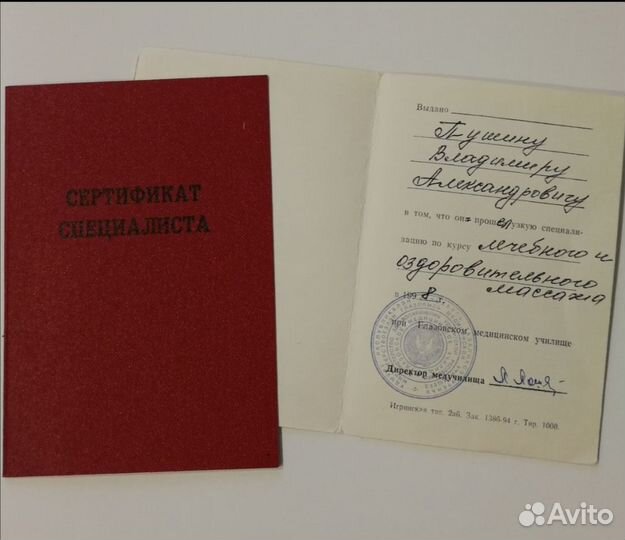 СЕРТИФИКАТ
СПЕЦИАЛИСТА
Выдано
Пушину
Владимиру
Александровичу
в том, что он прошел узкую специали-
зацию по курсу лечебного и
оздоровительного
массажа
в 1998 г.
при Глазовском медицинском училище
Директор медучилища
Игринская тип. Заб. Зак. 1386-94 г. Тир. 1000.
Avito